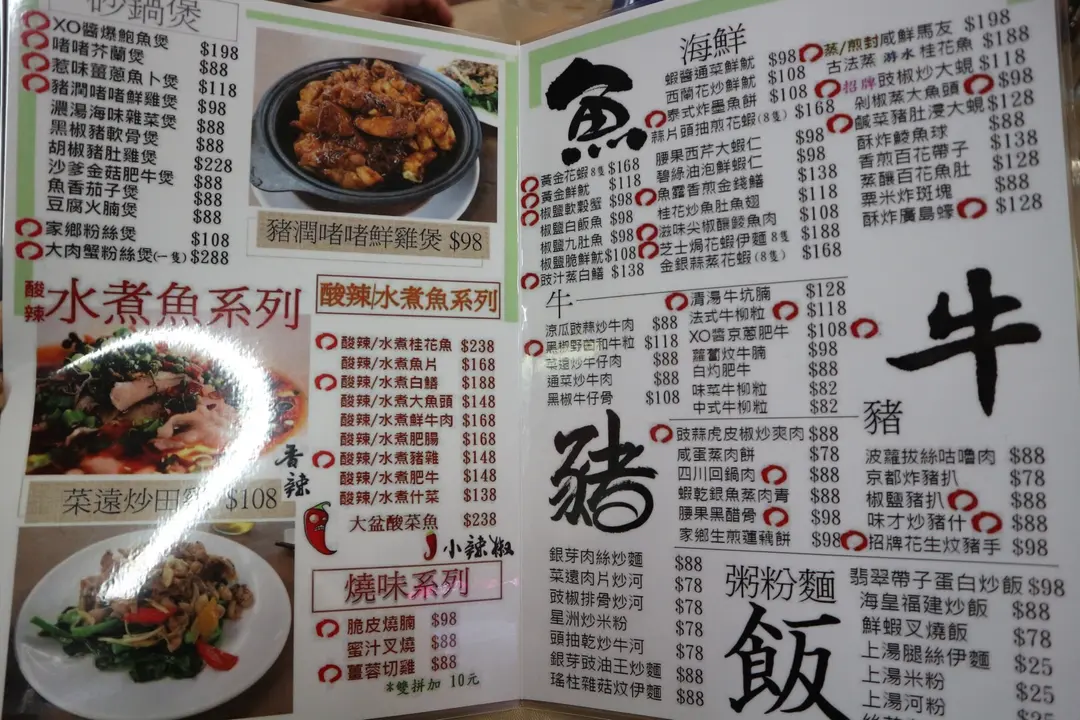 砂鍋煲
XO醬爆鮑魚煲 $198
啫啫芥蘭煲 $88
惹味薑蔥魚卜煲 $118
豬潤啫啫鮮雞煲 $98
濃湯海味雜菜煲 $88
黑椒豬軟骨煲 $88
胡椒豬肚雞煲 $228
沙爹金菇肥牛煲 $88
魚香茄子煲 $88
豆腐火腩煲 $88
家鄉粉絲煲 $108
大肉蟹粉絲煲(一隻) $288
豬潤啫啫鮮雞煲 $98
酸辣水煮魚系列
菜遠炒田 $108
酸辣/水煮魚系列
酸辣/水煮桂花魚 $238
酸辣/水煮魚片 $168
酸辣/水煮白鱔 $188
酸辣/水煮大魚頭 $148
酸辣/水煮鮮牛肉 $168
酸辣/水煮肥腸 $168
酸辣/水煮豬雜 $148
酸辣/水煮肥牛 $148
酸辣/水煮什菜 $138
大盆酸菜魚 $238
香辣
小辣椒
燒味系列
脆皮燒腩 $98
蜜汁叉燒 $88
薑蓉切雞 $88
*雙拼加 10元
魚
海鮮
蝦醬通菜鮮魷 $98
西蘭花炒鮮魷 $108
泰式炸墨魚餅 $108
蒜片頭抽煎花蝦(8隻) $168
黃金花蝦8隻 $168
黃金鮮魷 $118
椒鹽軟殼蟹 $98
椒鹽白飯魚 $98
椒鹽九肚魚 $98
椒鹽脆鮮魷 $108
豉汁蒸白鱔 $138
腰果西芹大蝦仁 $98
碧綠油泡鮮蝦仁 $98
魚露香煎金錢鱔 $138
桂花炒魚肚魚翅 $118
滋味尖椒釀鯪魚肉 $108
芝士焗花蝦伊麵8隻 $188
金銀蒜蒸花蝦(8隻) $168
蒸/煎封咸鮮馬友 $198
古法蒸 游水 桂花魚 $188
招牌豉椒炒大蜆 $118
剁椒蒸大魚頭 $98
鹹菜豬肚浸大蜆 $128
酥炸鯪魚球 $88
香煎百花帶子 $138
蒸釀百花魚肚 $128
粟米炸斑塊 $88
酥炸廣島蠔 $128
牛
涼瓜豉蒜炒牛肉 $88
黑椒野菌和牛粒 $118
菜遠炒牛仔肉 $88
通菜炒牛肉 $88
黑椒牛仔骨 $108
清湯牛坑腩 $128
法式牛柳粒 $118
XO醬京蔥肥牛 $108
蘿蔔炆牛腩 $98
白灼肥牛 $88
味菜牛柳粒 $82
中式牛柳粒 $82
牛
豬
豬
豉蒜虎皮椒炒爽肉 $88
咸蛋蒸肉餅 $78
四川回鍋肉 $88
蝦乾銀魚蒸肉青 $88
腰果黑醋骨 $98
家鄉生煎蓮藕餅 $98
波蘿拔絲咕嚕肉 $88
京都炸豬扒 $78
椒鹽豬扒 $88
味才炒豬什 $88
招牌花生炆豬手 $98
銀芽肉絲炒麵 $88
菜遠肉片炒河 $78
豉椒排骨炒河 $78
星洲炒米粉 $78
頭抽乾炒牛河 $78
銀芽豉油王炒麵 $88
瑤柱雜菇炆伊麵 $88
粥粉麵
飯
翡翠帶子蛋白炒飯 $98
海皇福建炒飯 $88
鮮蝦叉燒飯 $78
上湯腿絲伊麵 $25
上湯米粉 $25
上湯河粉